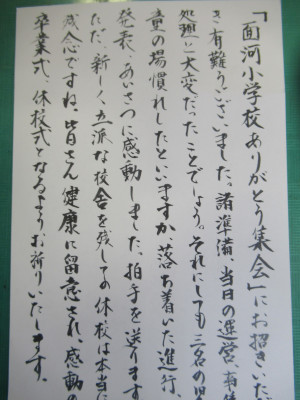 「面河小学校ありがとう集会」にお招きいただ
き有難うございました。諸準備、当日の運営、事後
処理と大変だったことでしょう。それにしても三名の児
童の場慣れしたといいますか、落ち着いた進行、
発表、あいさつに感動しました。拍手を送ります
ただ、新しく立派な校舎を残しての休校は本当に
残念ですね。皆さん健康に留意され、感動の
卒業式、休校式となるようお祈りいたします。